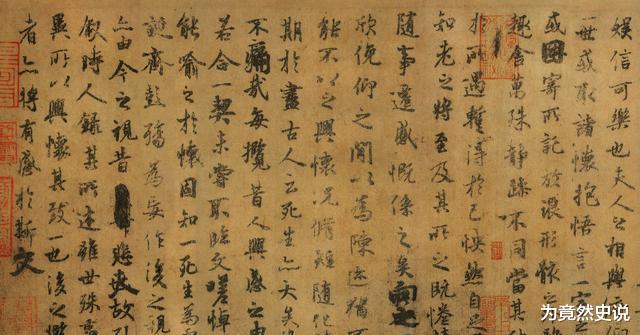 娛信可樂也夫人之相與
一世或取諸懷抱悟言一
或因寄所託放浪形骸之
趣舍萬殊靜躁不同當其
於所遇蹔得於己怏然自足
知老之將至及其所之既惓
隨事遷感慨係之矣向之
欣俛仰之閒以為陳迹猶
能不以之興懷況脩短隨
期於盡古人云死生亦大矣
不痛哉每攬昔人興感之由
若合一契未嘗不臨文嗟悼
能喻之於懷固知一死生為
誕齊彭殤為妄作後之視
亦由今之視昔悲夫故列
敘時人錄其所述雖世殊事
異所以興懷其致一也後之攬
者亦將有感於斯文
为竟然史说